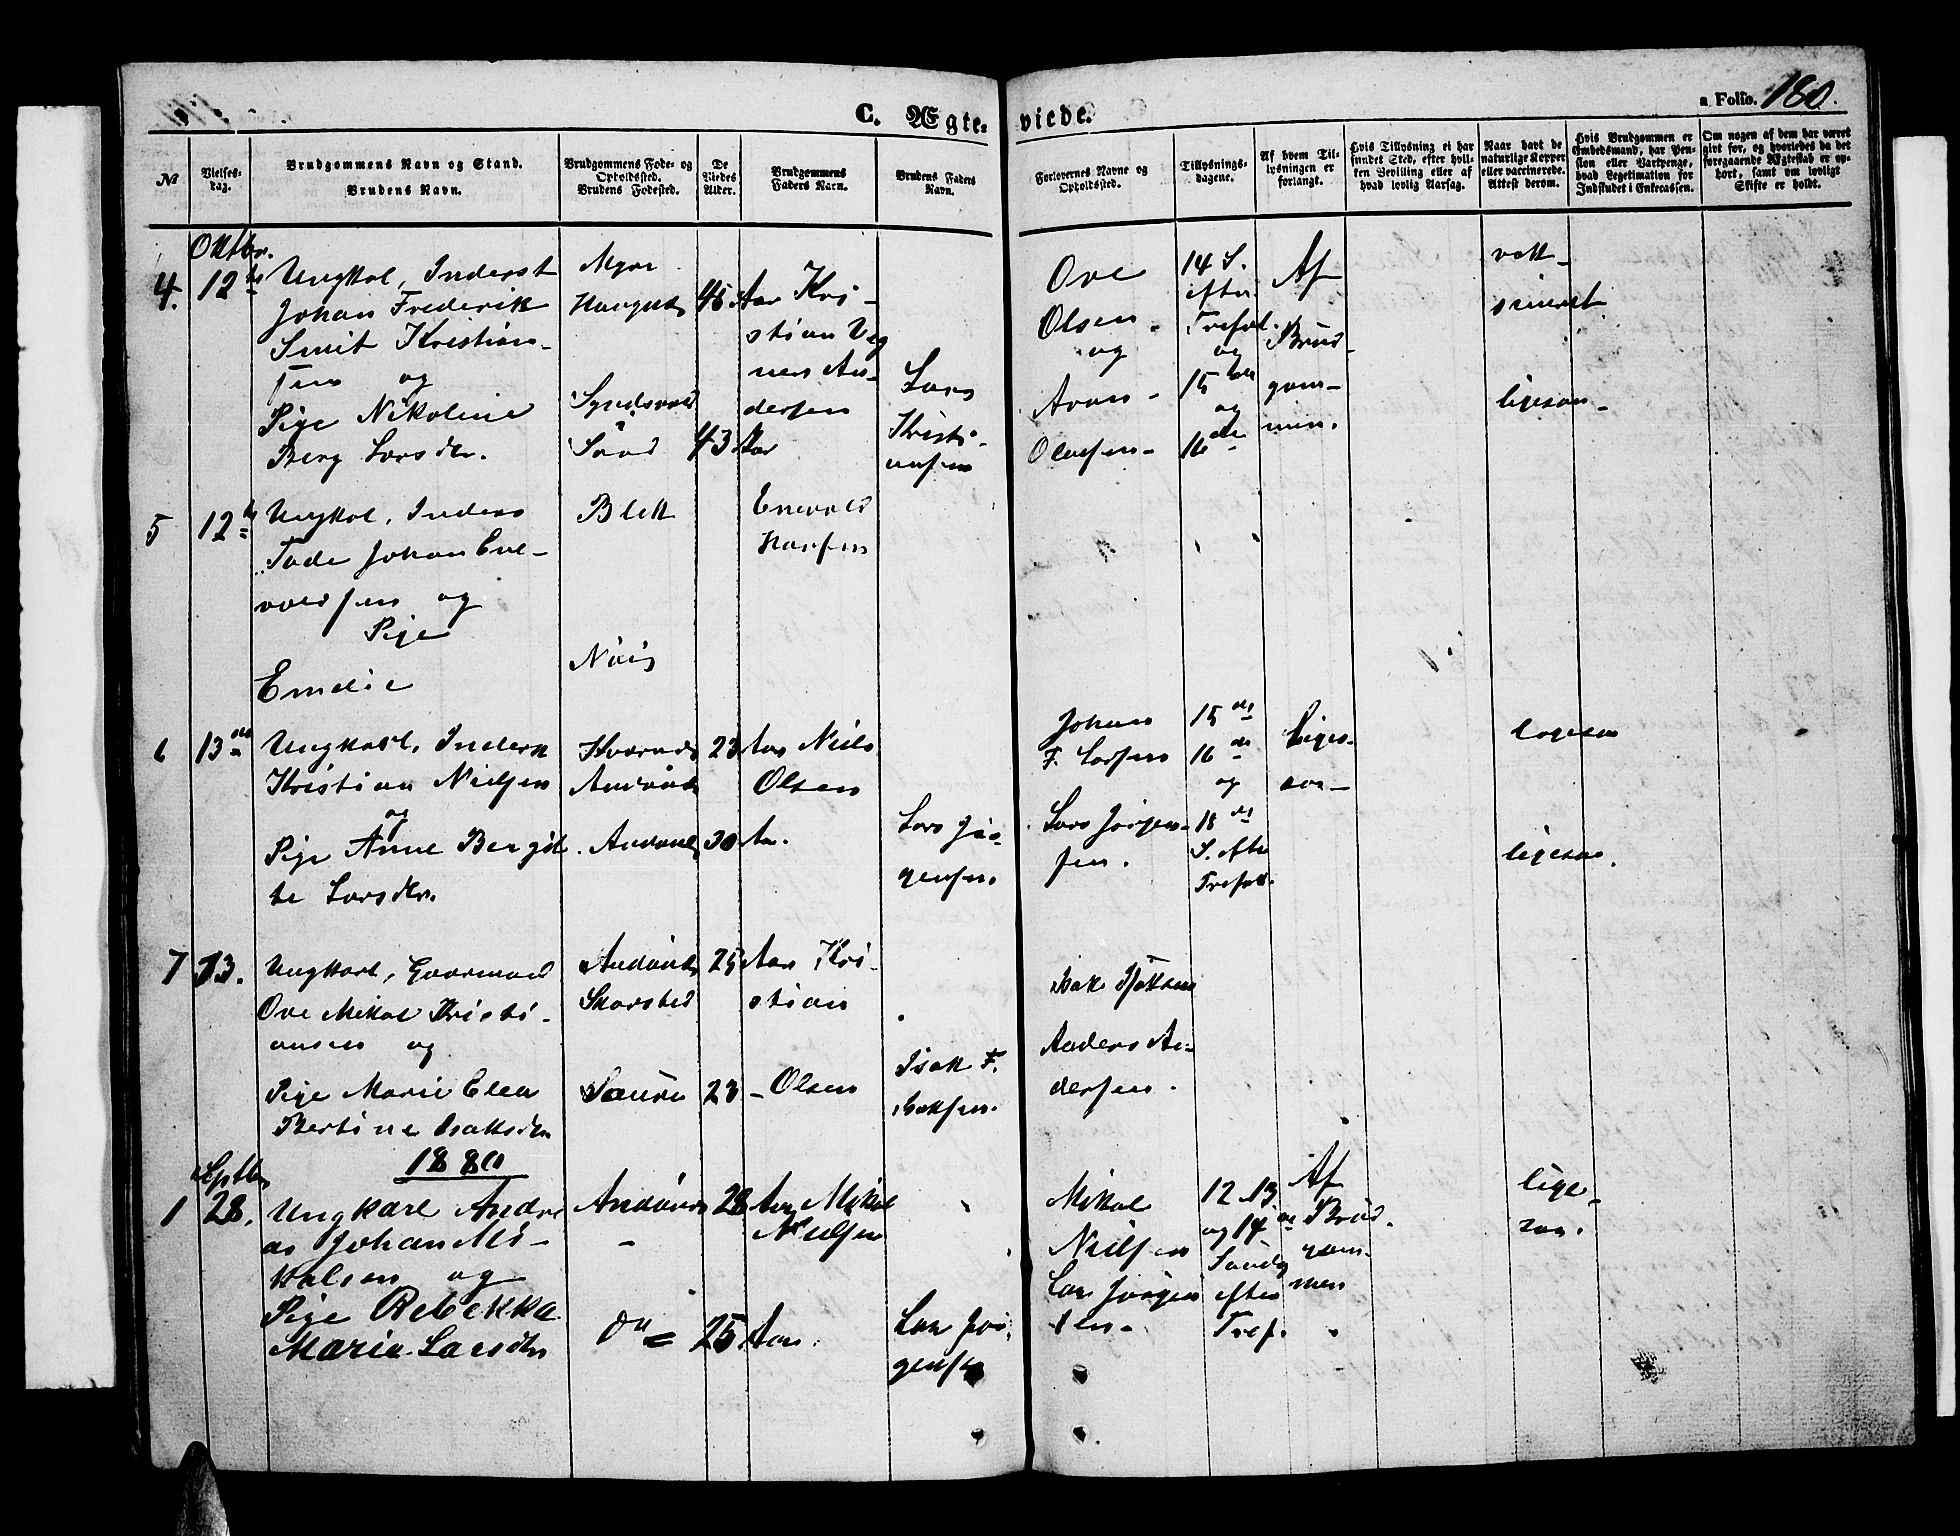 C. Ægteviede.
a Folio. 180.
No
Vielses-
dag.
Brudgommens Navn og Stand.
Brudens Navn.
Brudgommens Føde- og
Opholdssted.
Brudens Fødested.
De
Viedes
Alder.
Brudgommens
Faders Navn.
Brudens Faders
Navn.
Forlovernes Navne og
Opholdssted.
Tillysnings-
dagene.
Af hvem Til-
lysningen er
forlangt.
Hvis Tillysning ei har
fundet Sted, efter hvil-
ken Bevilling eller af
hvad lovlig Aarsag.
Naar havt de
naturlige Kopper
eller vaccinerede.
Attest derom.
Hvis Brudgommen er
Embedsmand, har Pen-
sion eller Vartpenge,
hvad Legitimation for
Indskudet i Enkecassen.
Om nogen af dem har været
gift for, og hvorledes da det
foregaaende Ægteskab er op-
hørt, samt om lovligt
Skifte er holdt.
Oktbr.
4. 12te
Ungkal, Inderst
Johan Frederik
Smit Kristian-
sen og
Pige Nikoline
Berg Larsdtr.
Myre
45 Aar
43 Aar
Kri-
stian
An-
dersen
Lars
Kristi-
ansen
Ove
Olsen
og
Aron
Olausen
14 S.
efter
Trefol.
og
15de
og
16de
Af
Brud-
gom-
men.
vak-
sineret
ligesaa
5 12te
Ungkal, Inders
Tade Johan Ene-
voldsen og
Pige
Emelie
Blek
Enevold
Hansen
6 13de
Ungkarl, Inderst
Kristian Nielsen
og
Pige Anne Bergit-
te Larsdtr.
23 Aar
30 Aar
Niels
Olsen
Lars Jør-
gensen
Johan
F. Larsen
Lars Jørgen-
sen.
15de
16de
og
18de
S. efter
Trefol.
Liges-
aa
ligesaa
ligesaa.
7 13.
Ungkarl, Gaarmand
Ove Mikal Kristi-
ansen og
Pige Marie Elea
Bertine Isaksdtr
Skarsted
25 Aar
23
Kri-
stian
Olsen
Isak F.
Isaksen.
Anders An-
dersen.
1880
Septbr
1 28.
Ungkarl Andre
as Johan Mi-
kalsen og
Pige Rebekka
Maria Larsdtr
28 Aar
Do
25 Aar.
Mikal
Nielsen
Lars Jør-
gensen
Mikal
Nielsen
Lars Jørgen
sen
12 13
og 14de
Søndag
efter
Tref.
Af
Brud-
gom-
men
lige-
saa.